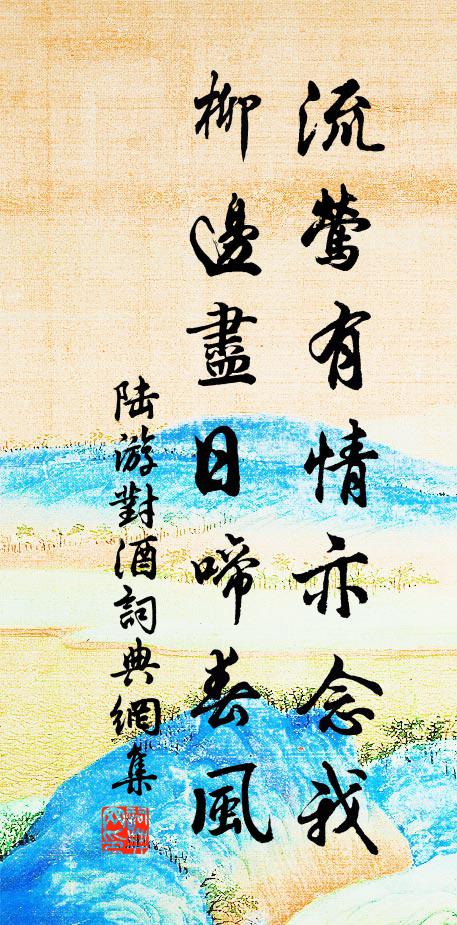 流鶯有情亦念我
柳邊盡日啼春風
陸游對酒詞典網集